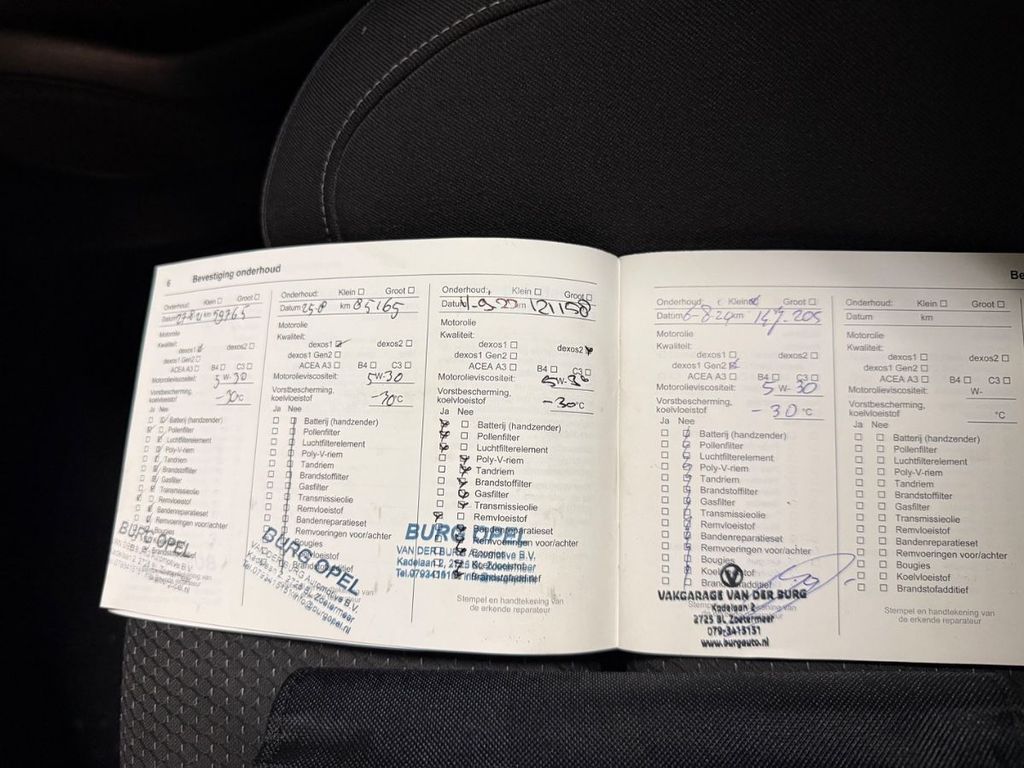 6 Bevestiging onderhoud
Onderhoud: Klein Groot
Datum km 59765
Motorolie
Kwaliteit:
dexos1 dexos2
dexos1 Gen2
ACEA A3 B4 C3
Motorolieviscositeit: 5W-30
Vorstbescherming,
koelvloeistof -30°C
Ja Nee
Batterij (handzender)
Pollenfilter
Luchtfilterelement
Poly-V-riem
Tandriem
Brandstoffilter
Gasfilter
Transmissieolie
Remvloeistof
Bandenreparatieset
Remvoeringen voor/achter
Bougies
BURG OPEL
Onderhoud: Klein Groot
Datum 25-8 km 85165
Motorolie
Kwaliteit:
dexos1 dexos2
dexos1 Gen2
ACEA A3 B4 C3
Motorolieviscositeit: 5W-30
Vorstbescherming,
koelvloeistof -30°C
Ja Nee
Batterij (handzender)
Pollenfilter
Luchtfilterelement
Poly-V-riem
Tandriem
Brandstoffilter
Gasfilter
Transmissieolie
Remvloeistof
Bandenreparatieset
Remvoeringen voor/achter
Bougies
BURG OPEL
VAN DER BURG Automotive B.V.
Kadelaan 2, 2725 BL Zoetermeer
info@burgopel.nl
Onderhoud: Klein Groot
Datum km 121158
Motorolie
Kwaliteit:
dexos1 dexos2
dexos1 Gen2
ACEA A3 B4 C3
Motorolieviscositeit: 5W-30
Vorstbescherming,
koelvloeistof -30°C
Ja Nee
Batterij (handzender)
Pollenfilter
Luchtfilterelement
Poly-V-riem
Tandriem
Brandstoffilter
Gasfilter
Transmissieolie
Remvloeistof
Bandenreparatieset
Remvoeringen voor/achter
BURG OPEL
VAN DER BURG Automotive B.V.
Kadelaan 2, 2725 BL Zoetermeer
Brandstofadditief
Stempel en handtekening van
de erkende reparateur
Be
Onderhoud: Klein Groot
Datum 6-8-24 km 147.205
Motorolie
Kwaliteit:
dexos1 dexos2
dexos1 Gen2
ACEA A3 B4 C3
Motorolieviscositeit: 5W-30
Vorstbescherming,
koelvloeistof -30°C
Ja Nee
Batterij (handzender)
Pollenfilter
Luchtfilterelement
Poly-V-riem
Tandriem
Brandstoffilter
Gasfilter
Transmissieolie
Remvloeistof
Bandenreparatieset
Remvoeringen voor/achter
Bougies
VAKGARAGE VAN DER BURG
Kadelaan 2
2725 BL Zoetermeer
079-3415151
www.burgauto.nl
Onderhoud: Klein Groot
Datum km
Motorolie
Kwaliteit:
dexos1 dexos2
dexos1 Gen2
ACEA A3 B4 C3
Motorolieviscositeit: W-
Vorstbescherming,
koelvloeistof °C
Ja Nee
Batterij (handzender)
Pollenfilter
Luchtfilterelement
Poly-V-riem
Tandriem
Brandstoffilter
Gasfilter
Transmissieolie
Remvloeistof
Bandenreparatieset
Remvoeringen voor/achter
Bougies
Koelvloeistof
Brandstofadditief
Stempel en handtekening van
de erkende reparateur